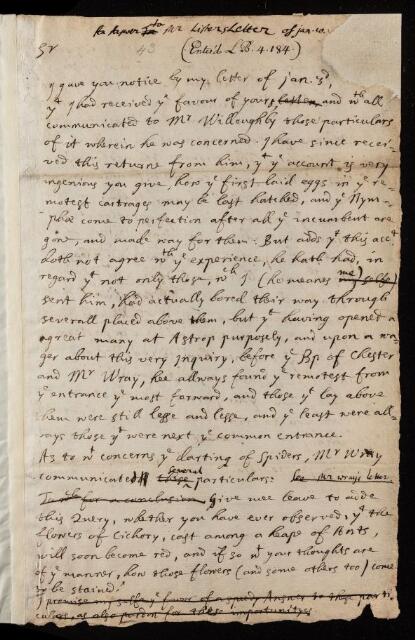 An Answer to Mr Listers Letter of Jan. 10.
Sr 43 (Enter'd L.B. 4. 184.)
I gave you notice by my letter of Jan. 3d,
yt I had received ye favour of yours letter and wth all
communicated to Mr Willoughby those particulars
of it wherein he was concerned. I have since recei-
ved this returne from him, yt ye account is very
ingenious you give, how ye first laid eggs in ye re-
motest cartrages may be last hatched, and ye Nym-
phæ come to perfection after all ye incumbent are
gone, and made way for them: But adds yt this acct
doth not agree wth ye experience, he hath had, in
regard yt not only those, wch I (he means my selfe) me)
sent him, had actually bored their way through
severall placed above them, but yt having opened a
great many at Astrop purposely, and upon a wa-
ger about this very Inquiry, before ye Bp of Chester
and Mr Wray, hee allways found ye remotest from
ye entrance ye most forward, and those yt lay above
them were still lesse and lesse, and ye least were all-
ways those yt were next ye common entrance.
As to wt concerns ye darting of Spiders, Mr Wray
communicated these several particulars: See Mr wrays letter
for a conclusion, Give mee leave to adde
this Query, whether you have ever observed, yt the
flowers of Cichory, cast among a heape of Ants,
will soon become red, and if so wt your thoughts are
of ye manner, how those flowers (and some others too) come
to be stained.
I promise my selfe ye favor of a speedy Answer to these parti-
culars, as also pardon for these importunityes